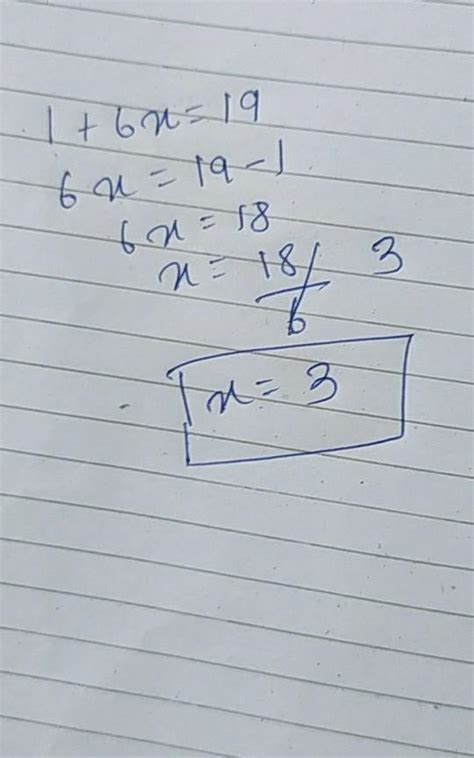 1 + 6x = 19
6x = 19 - 1
6x = 18
x = 18/6 3
x = 3